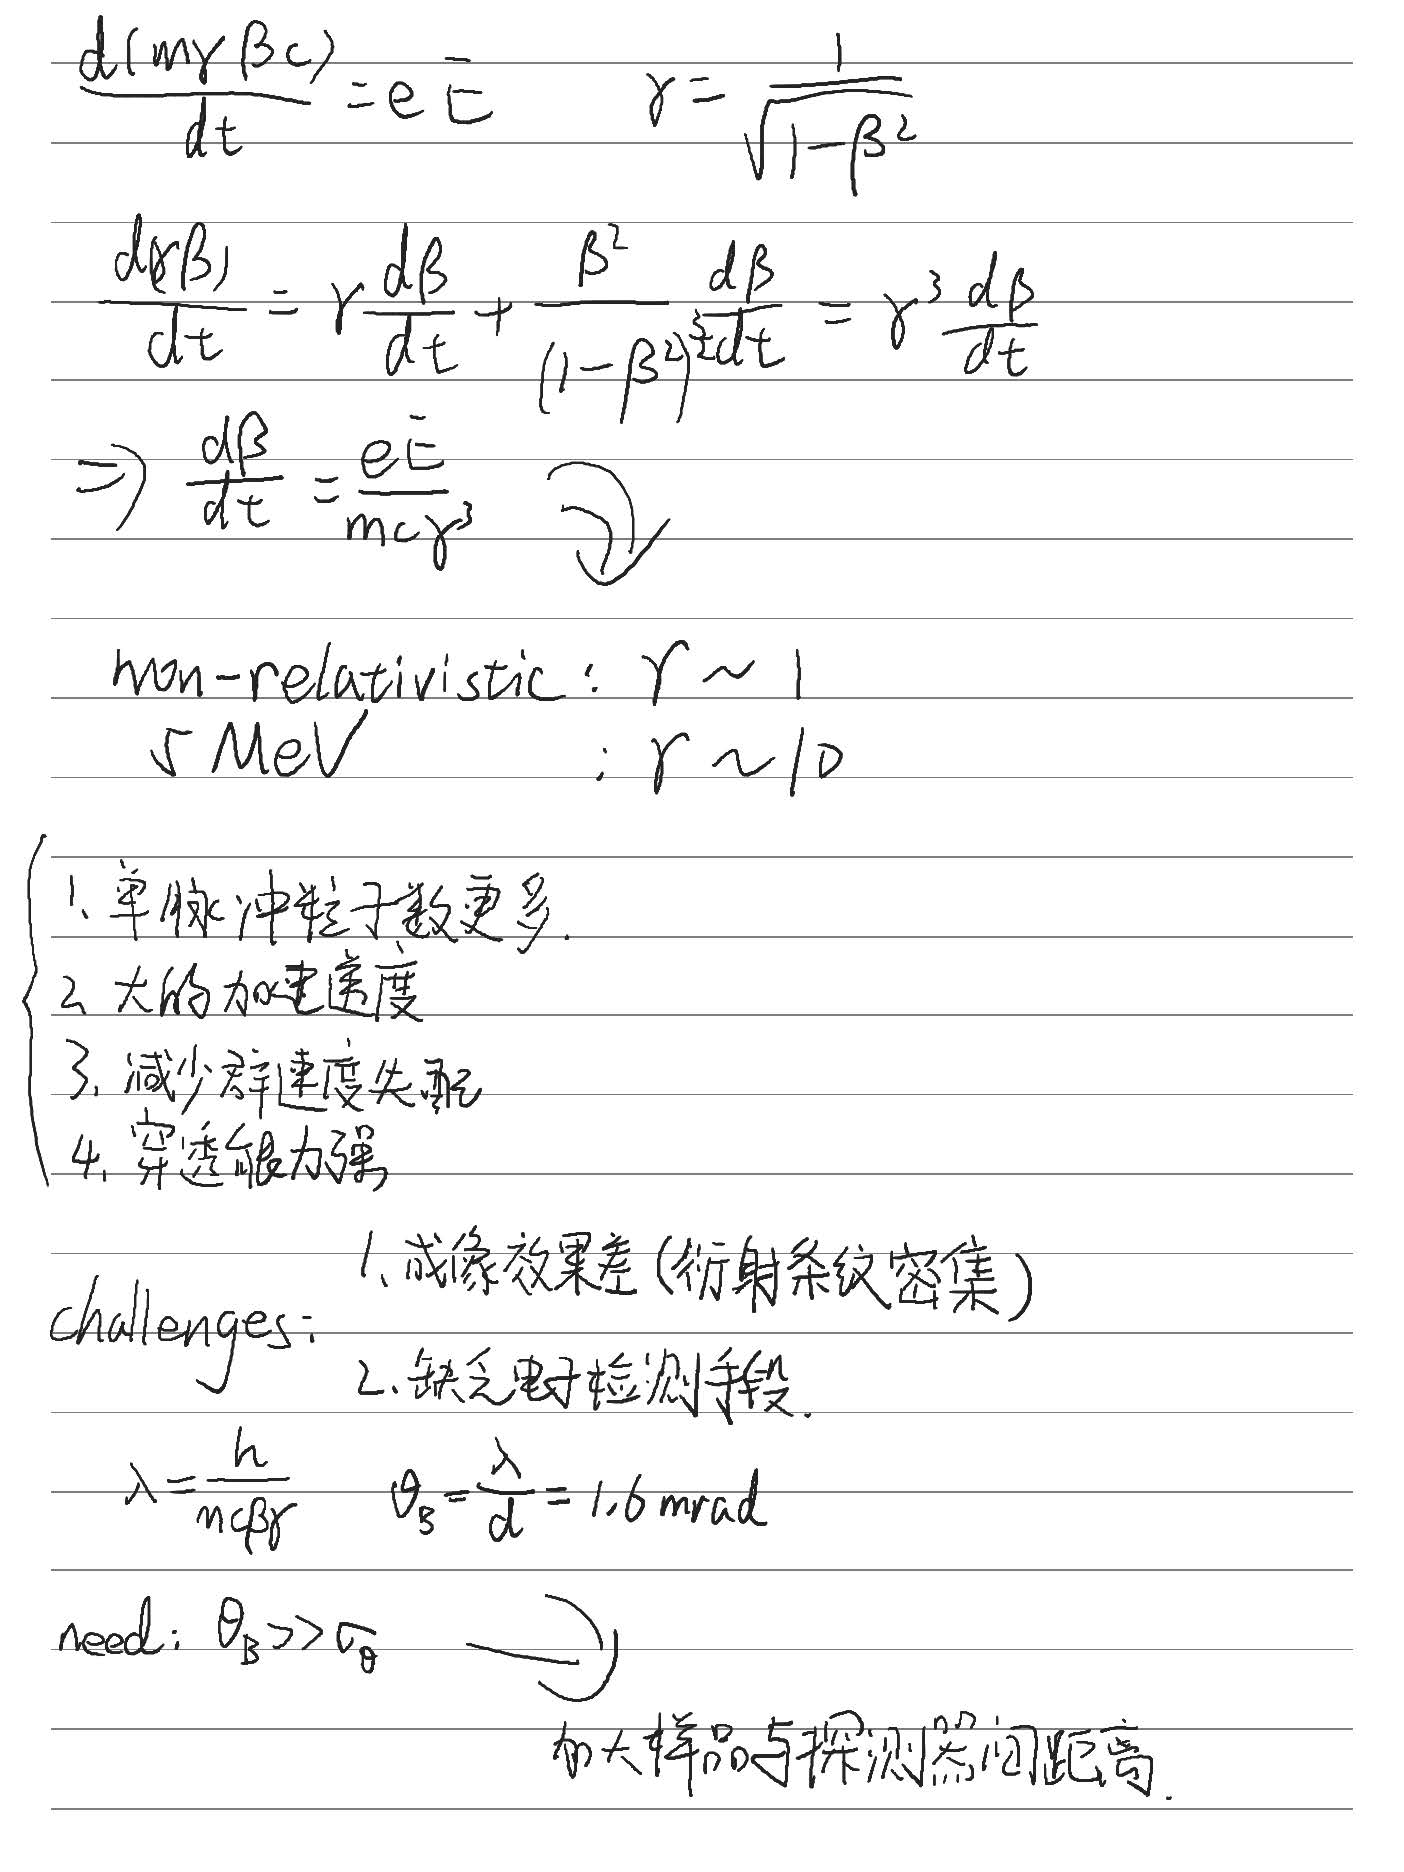 d(mγβc)/dt = eE    γ = 1/√(1-β²)
d(γβ)/dt = γ dβ/dt + β²/(1-β²)^(3/2) dβ/dt = γ³ dβ/dt
⇒ dβ/dt = eE/(mcγ³)
non-relativistic: γ ~ 1
5 MeV : γ ~ 10
1、单脉冲粒子数更多.
2、大的加速速度
3、减少群速度失配
4、穿透能力强
challenges:
1、成像效果差(衍射条纹密集)
2、缺乏电子检测手段.
λ = h/(mcβγ)    θ_B = λ/d = 1.6 mrad
need: θ_B >> σ_θ
加大样品与探测器间距离.